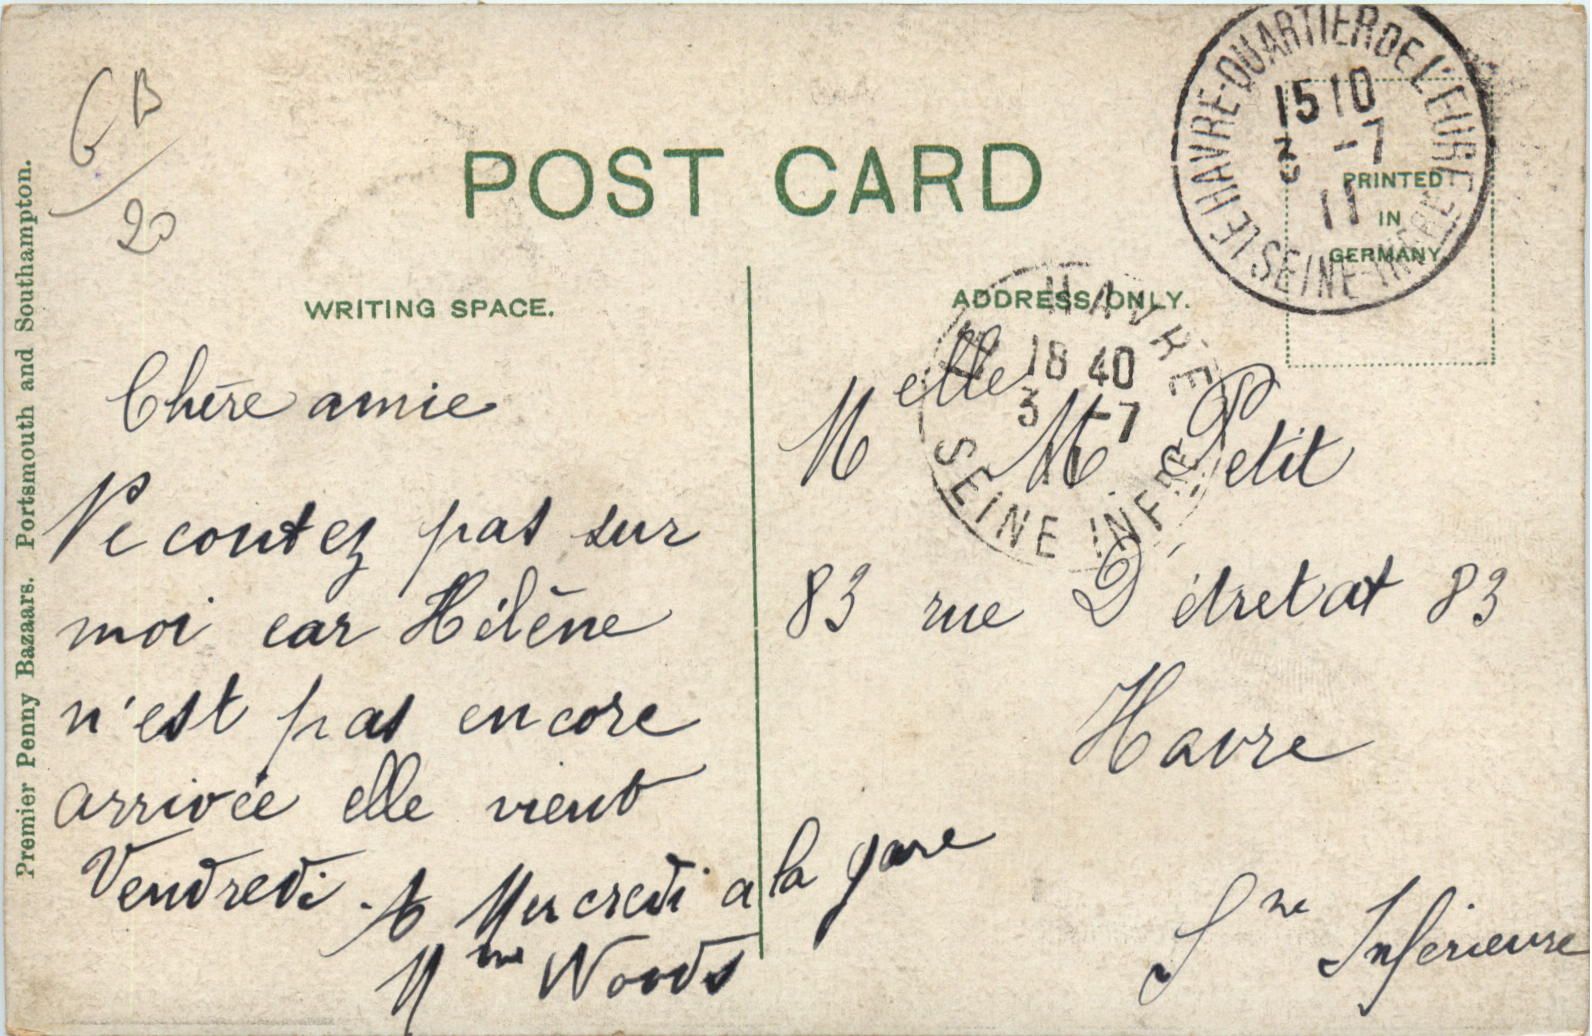 GB
20
POST CARD
WRITING SPACE.
ADDRESS ONLY.
PRINTED
IN
GERMANY
LE HAVRE-QUARTIER DE L'EURE
15 10
3 -7
11
SEINE-INFRE
HAVRE
18 40
3 -7
11
SEINE INFRE
Premier Penny Bazaars. Portsmouth and Southampton.
Chère amie
Ne contez pas sur
moi car Hélène
n'est pas encore
arrivée elle vient
Vendredi. A Mercredi a la gare
Mme Woods
Melle M. Petit
83 rue D'étretat 83
Havre
Sne Inférieure